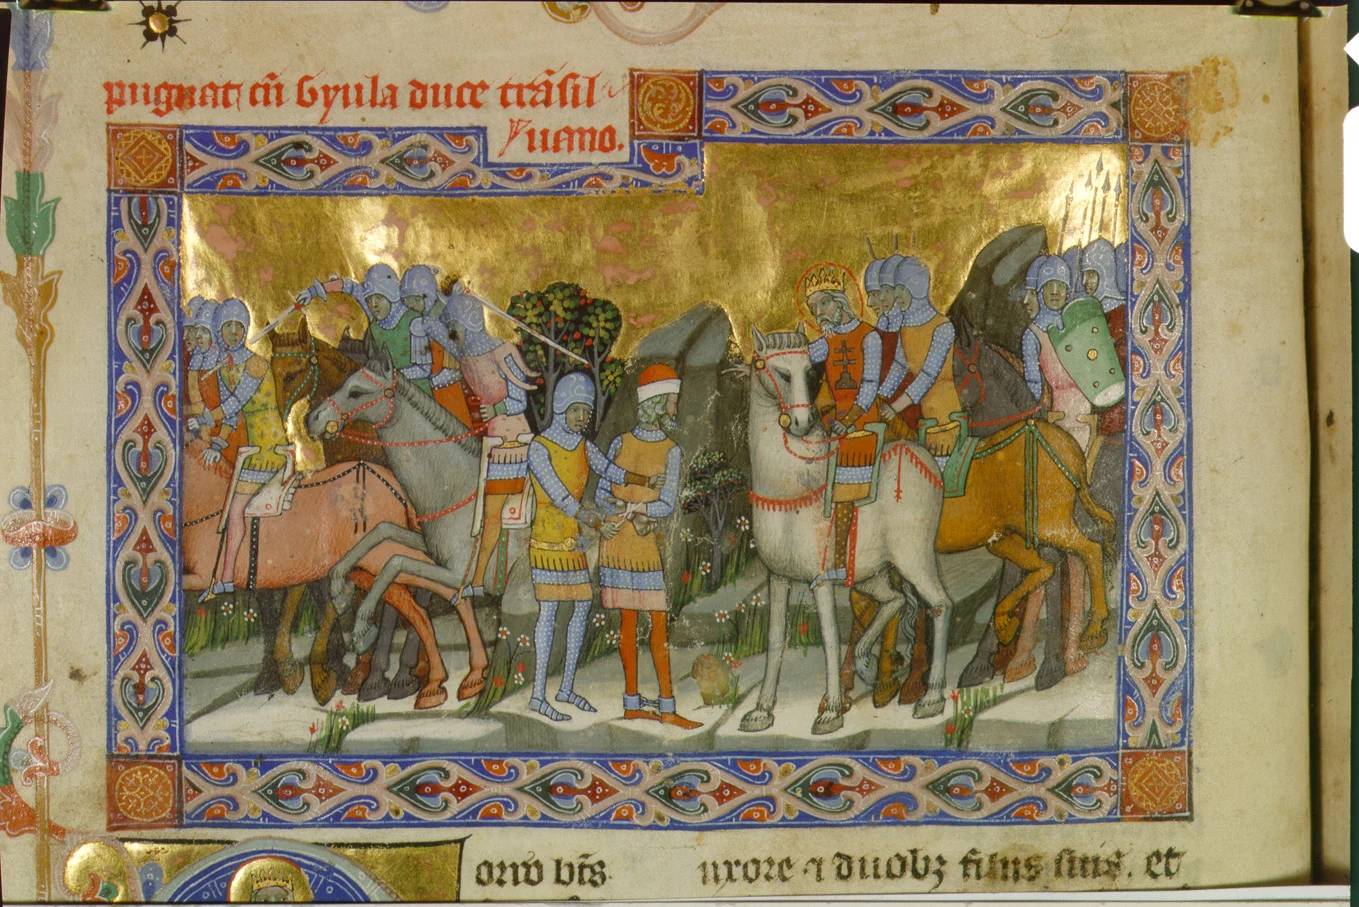 pugnat cũ Gyula duce trãsil
uano.
orro bt̃s uxore ⁊ duobꝫ filiis suis. et